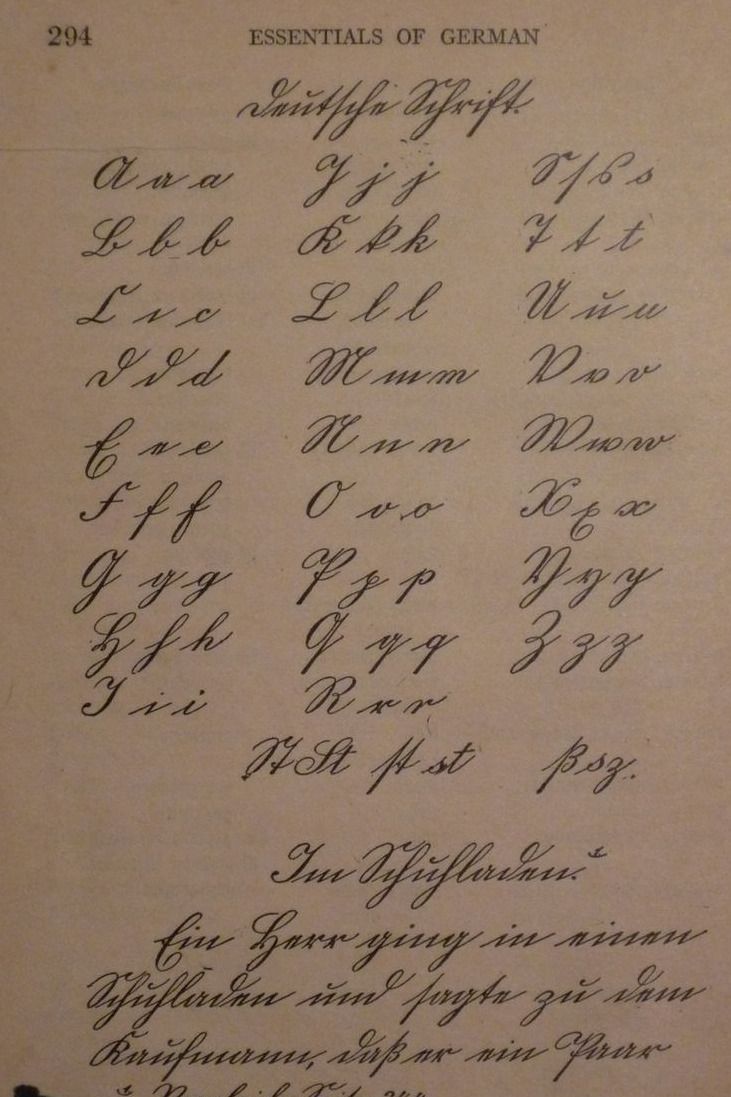 294 ESSENTIALS OF GERMAN
Deutsche Schrift.
A a a J j j S ſ s s
B b b K k k T t t
C c c L l l U u u
D d d M m m V v v
E e e N n n W w w
F f f O o o X x x
G g g P p p Y y y
H h h Q q q Z z z
I i i R r r
St St ſt st ß sz.
Im Schuhladen.
Ein Herr ging in einen
Schuhladen und ſagte zu dem
Kaufmann, daß er ein Paar